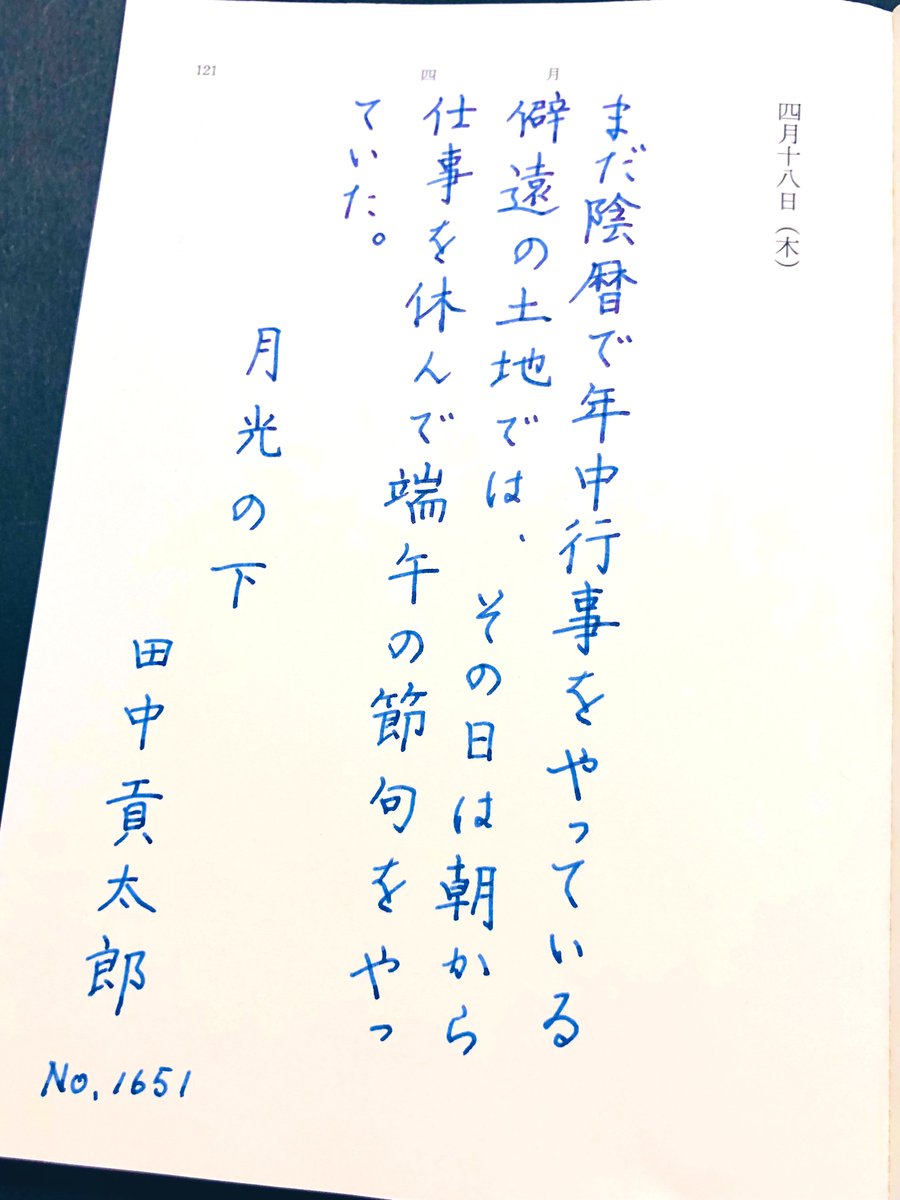 四月十八日（木）
月
四
121
まだ陰暦で年中行事をやっている
僻遠の土地では、その日は朝から
仕事を休んで端午の節句をやっ
ていた。
月光の下
田中貢太郎
No. 1651